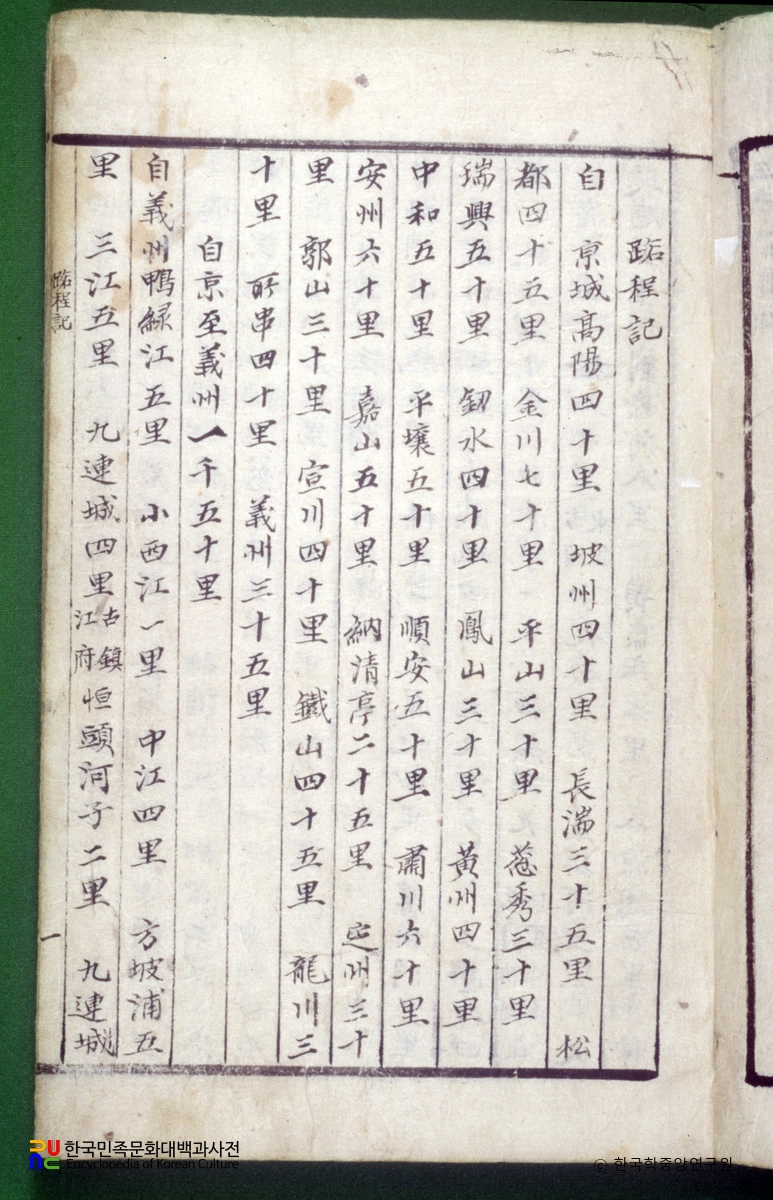 路程記
自 京城高陽四十里 坡州四十里 長湍三十五里 松
都四十五里 金川七十里 平山三十里 葱秀三十里
瑞興五十里 釼水四十里 鳳山三十里 黃州四十里
中和五十里 平壤五十里 順安五十里 肅川六十里
安州六十里 嘉山五十里 納清亭二十五里 定州三十
里 郭山三十里 宣川四十里 鐵山四十五里 龍川三
十里 所串四十里 義州三十五里
自京至義州一千五十里
自義州鴨綠江五里 小西江一里 中江四里 方坡浦五
里 三江五里 九連城四里 古鎮江府 恒頭河子二里 九連城
路程記
一
한국민족문화대백과사전
Encyclopedia of Korean Culture
© 한국학중앙연구원